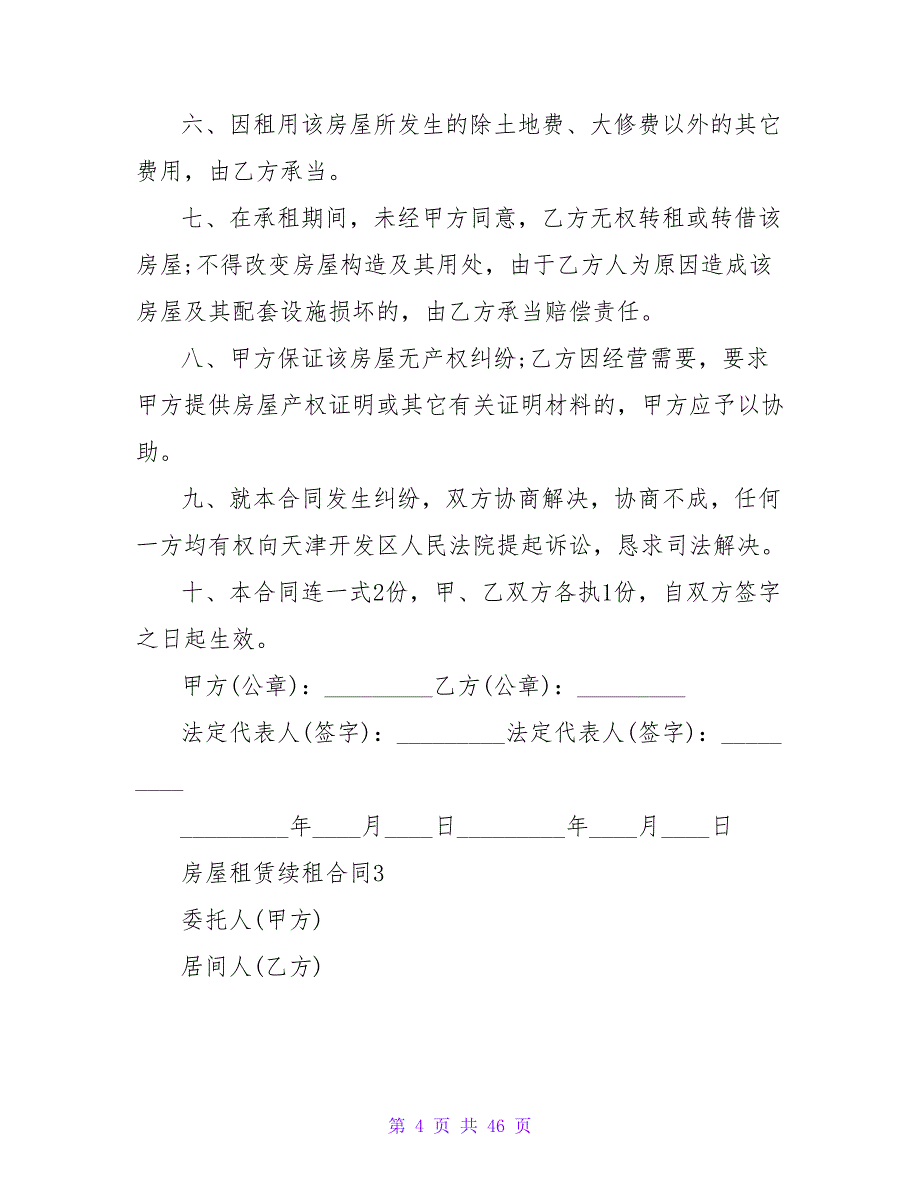 六、因租用该房屋所发生的除土地费、大修费以外的其它
费用，由乙方承当。
七、在承租期间，未经甲方同意，乙方无权转租或转借该
房屋;不得改变房屋构造及其用处，由于乙方人为原因造成该
房屋及其配套设施损坏的，由乙方承当赔偿责任。
八、甲方保证该房屋无产权纠纷;乙方因经营需要，要求
甲方提供房屋产权证明或其它有关证明材料的，甲方应予以协
助。
九、就本合同发生纠纷，双方协商解决，协商不成，任何
一方均有权向天津开发区人民法院提起诉讼，恳求司法解决。
十、本合同连一式2份，甲、乙双方各执1份，自双方签字
之日起生效。
甲方(公章)：_________乙方(公章)：_________
法定代表人(签字)：_________法定代表人(签字)：_____
____
_________年____月____日_________年____月____日
房屋租赁续租合同3
委托人(甲方)
居间人(乙方)
第 4 页 共 46 页